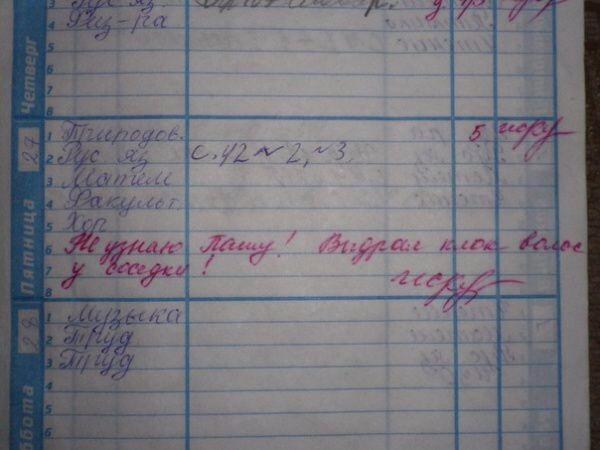 3 Рус яз.
4 Физ-ра
Четверг
27
Пятница
1 Природов. 5
2 Рус яз с. 42 № 2, № 3.
3 Матем
4 Факульт.
5 Хор
6 Не узнаю Пашу! Выдрал клок волос
7 у соседки!
8
28
1 Музыка
2 Труд
3 Труд
4
5
6